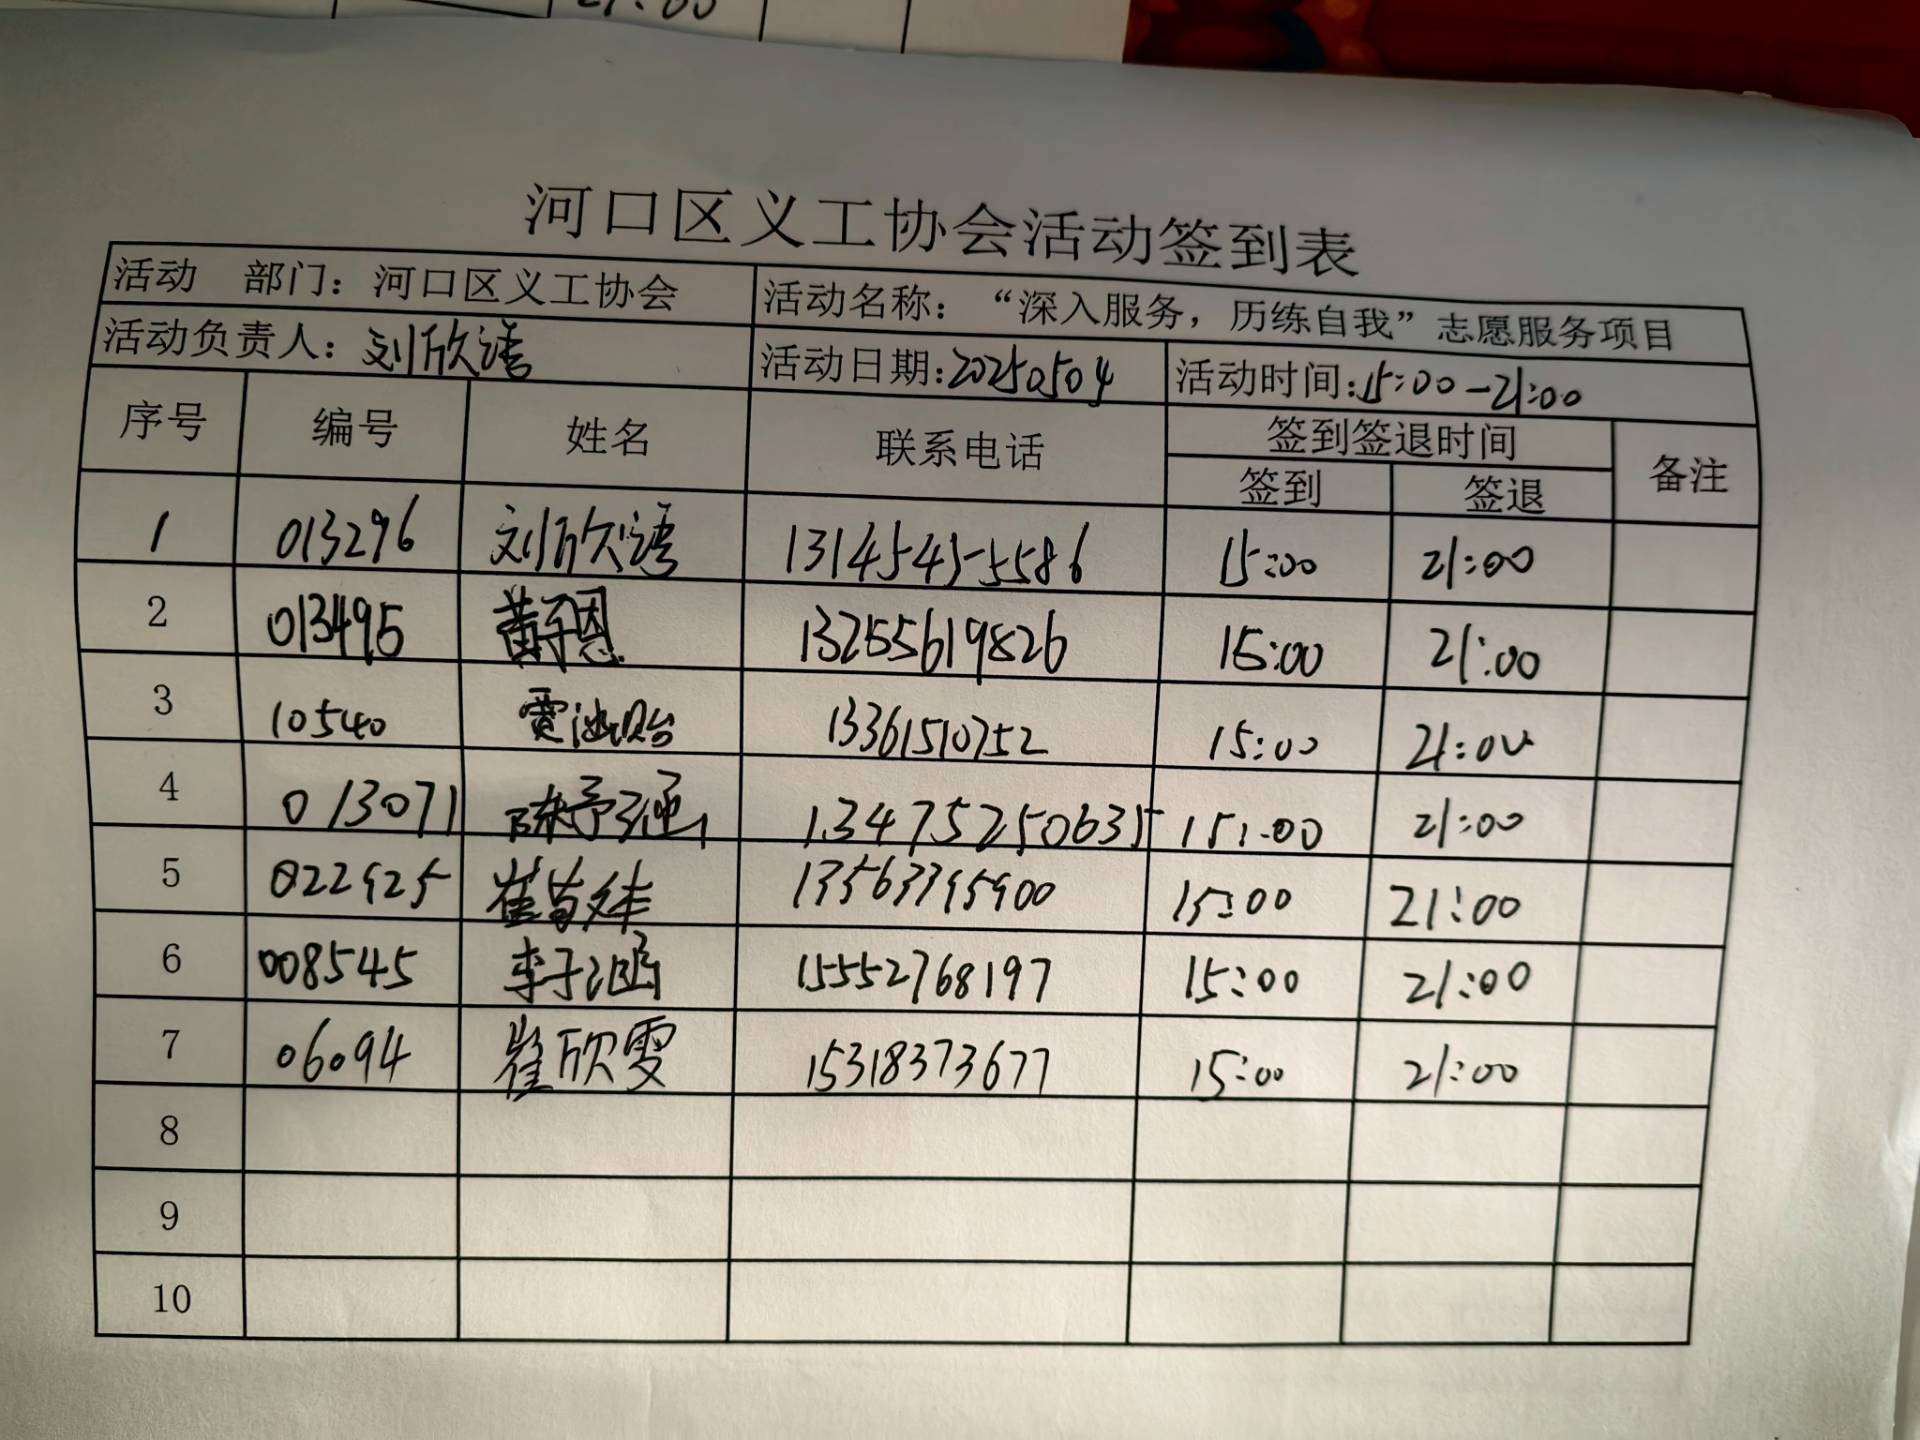 21:00
河口区义工协会活动签到表
活动 部门：河口区义工协会 活动名称：“深入服务，历练自我”志愿服务项目
活动负责人：刘欣语 活动日期：20250504 活动时间：15:00-21:00
序号 编号 姓名 联系电话 签到签退时间 备注
签到 签退
1 013296 刘欣语 13145455586 15:00 21:00
2 013495 黄子恩 13255619826 15:00 21:00
3 10540 贾 贻 13361510752 15:00 21:00
4 013071 陈予涵 13475250635 15:00 21:00
5 022925 崔 13563795900 15:00 21:00
6 008545 李子涵 15552768197 15:00 21:00
7 06094 崔欣雯 15318373677 15:00 21:00
8
9
10